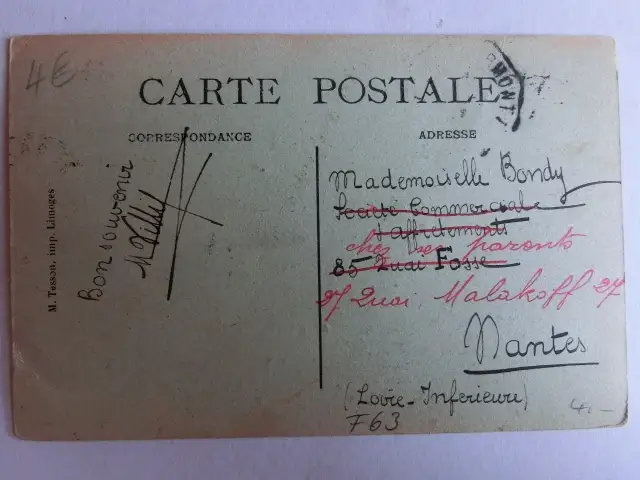 4€
CARTE POSTALE
MONT
CORRESPONDANCE
ADRESSE
M. Tesson, imp. Limoges
Bon souvenir
Mademoiselle Bondy
Société Commerciale
d'affrètements
chez ses parents
85 Quai Fosse
27 Quai Malakoff 27
Nantes
(Loire-Inferieure)
F63
4.-